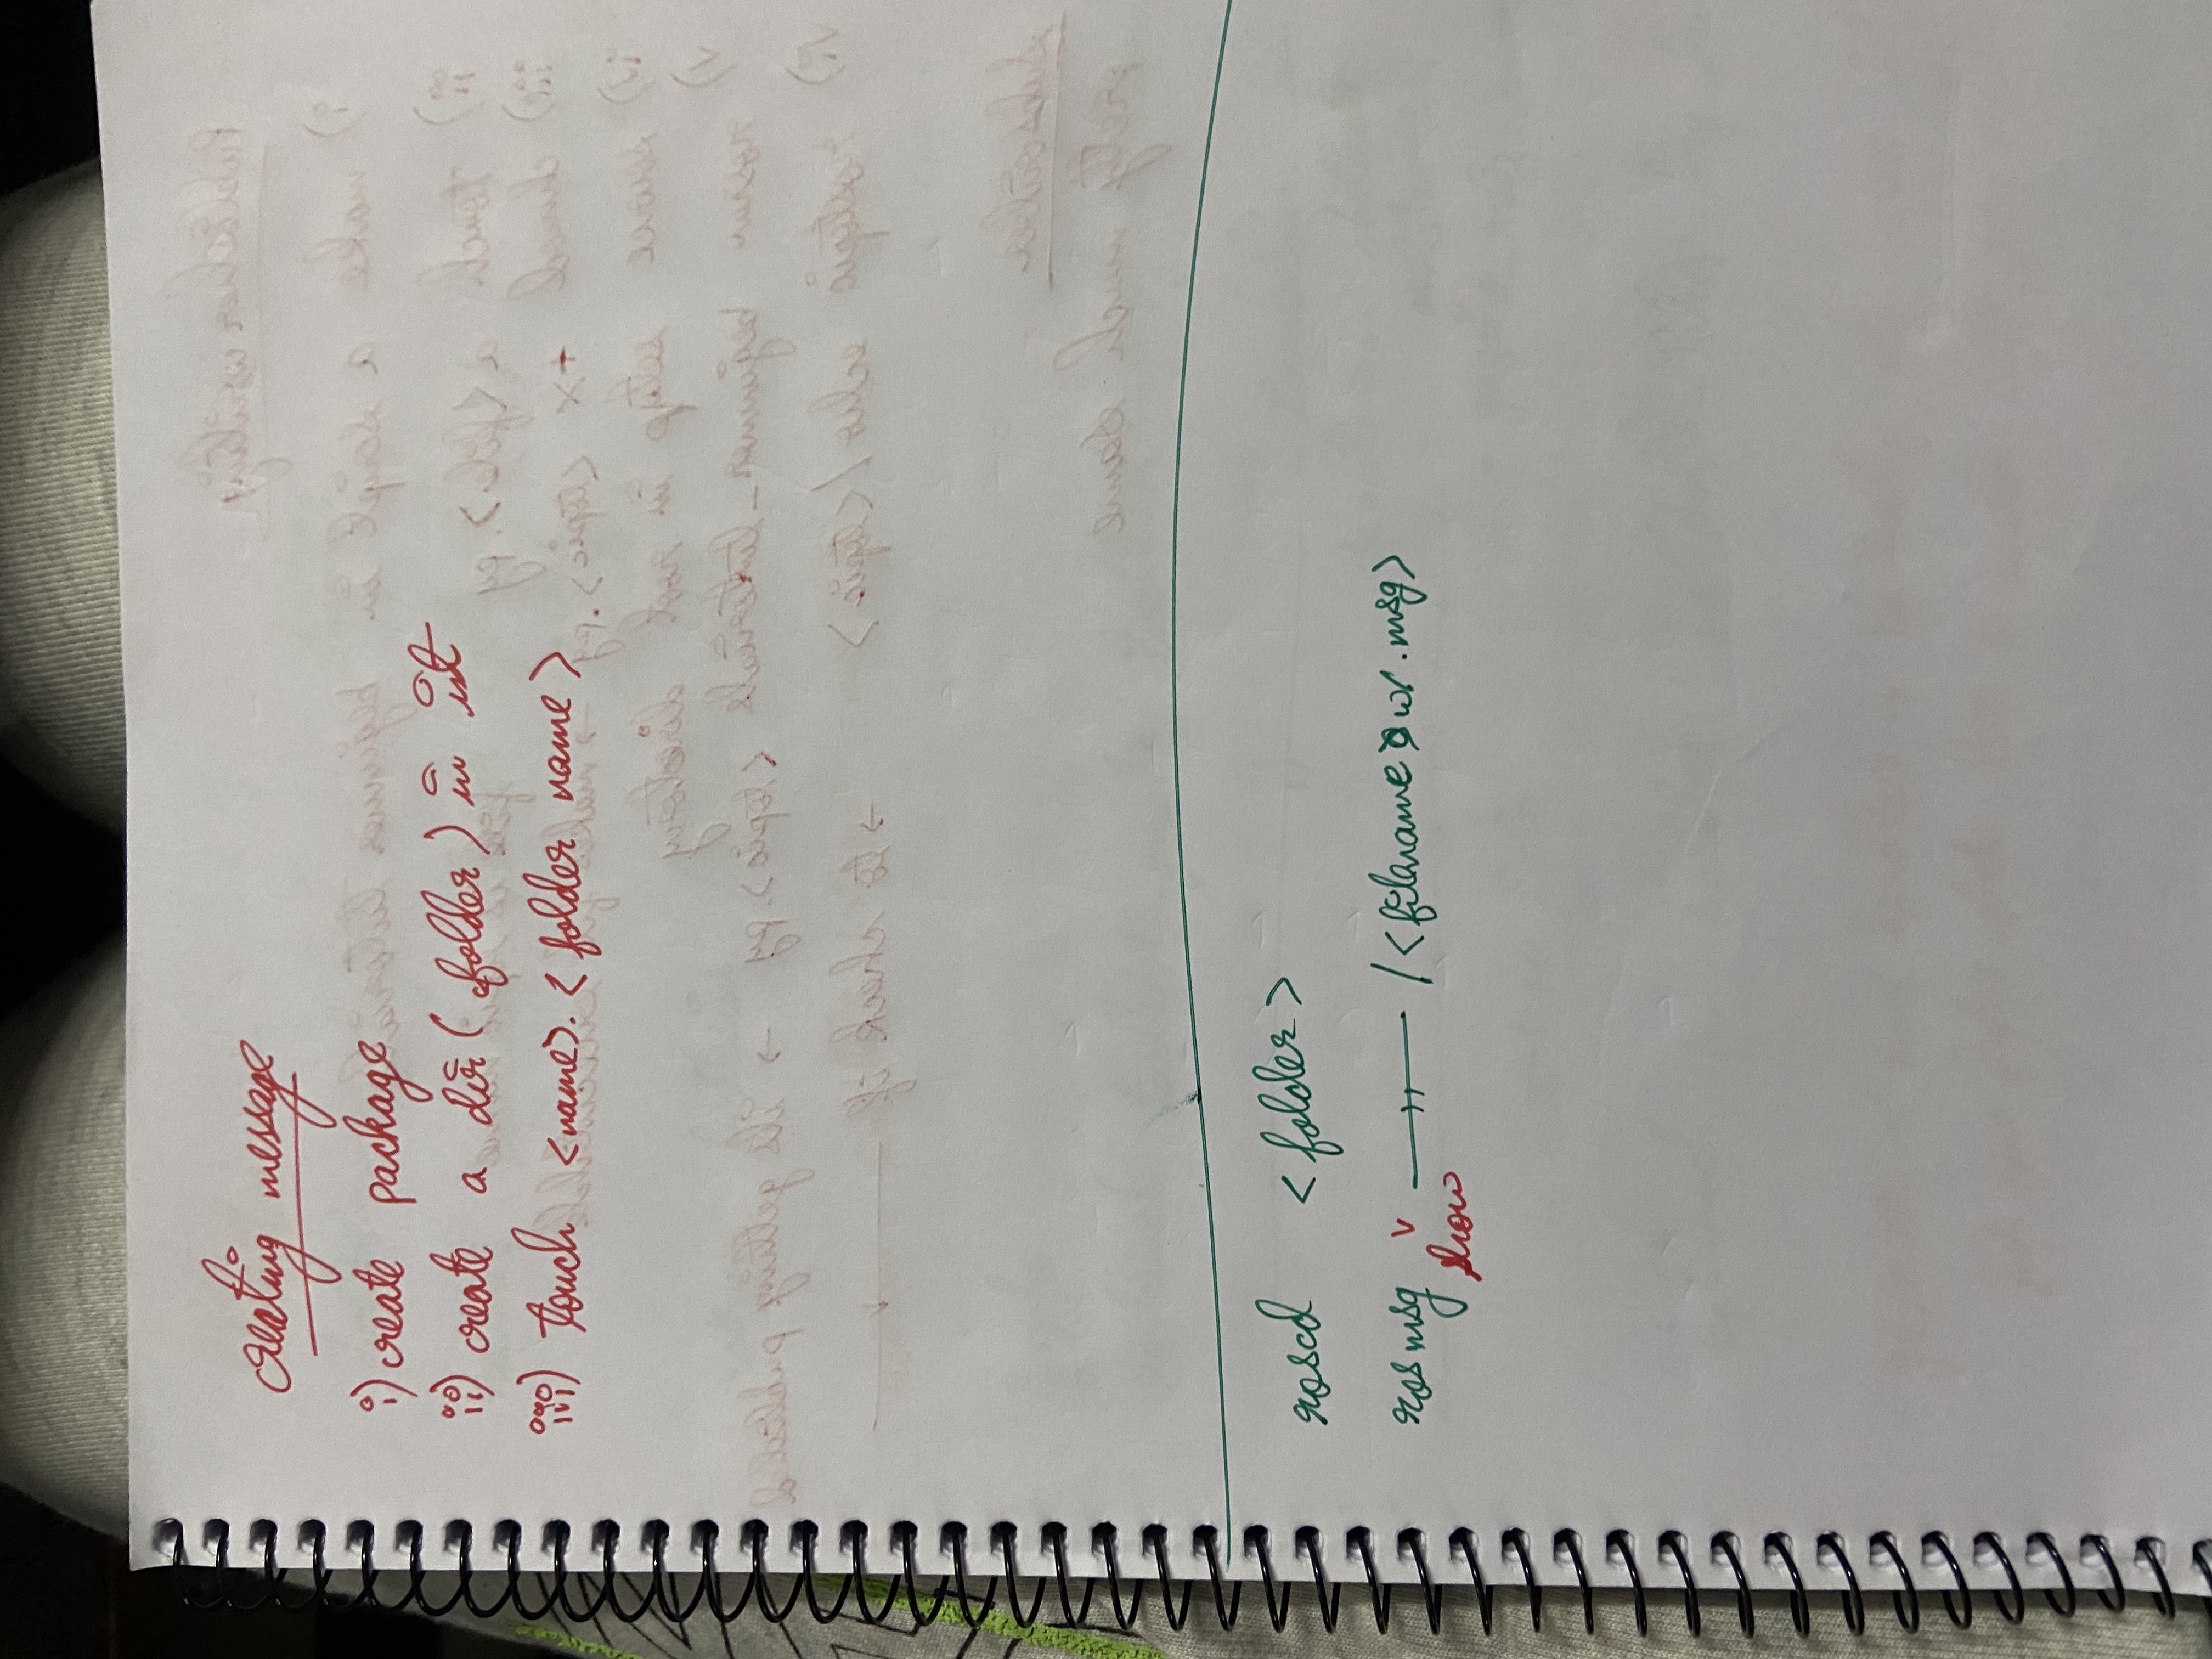 Creating message
i) create package
ii) create a dir (folder) in ist
iii) touch <name>.<folder name>
roscd <folder>
rosmsg v —〃— /<filename w/.msg>
show